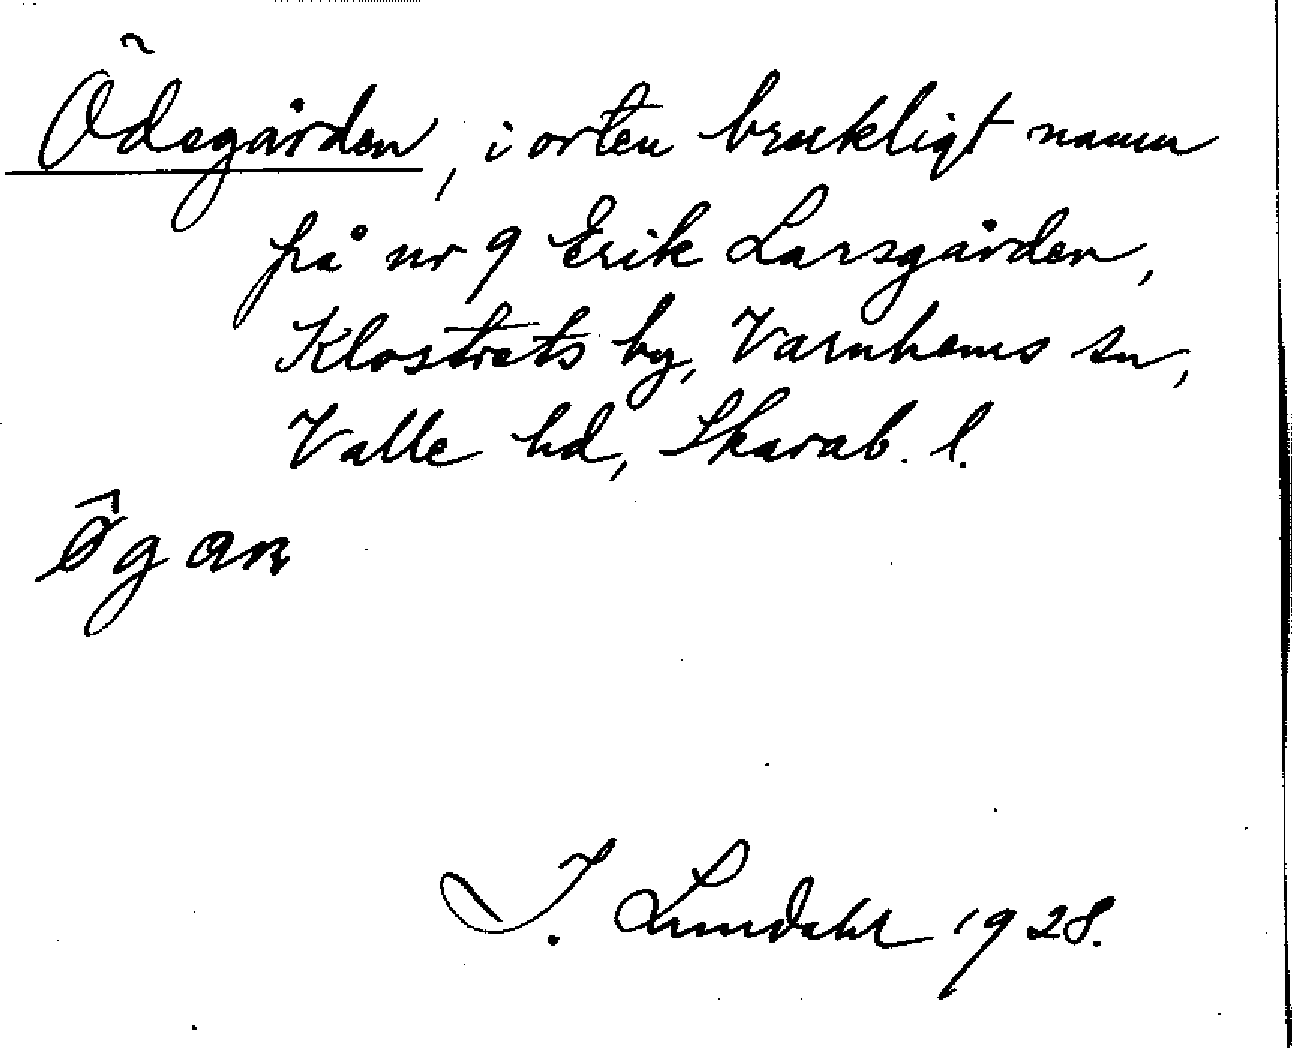 Ödegården, i orten brukligt namn
på nr 9 Erik Larsgården,
Klostrets by, Varnhems sn,
Valle hd, Skarab. l.
ø̂gan
I. Lundahl 1928.